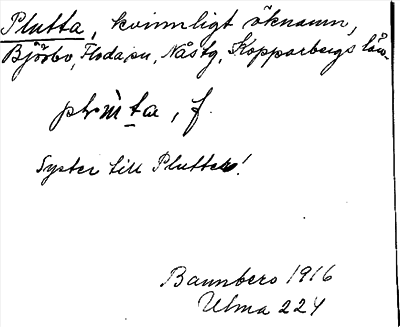 Plutta, kvinnligt öknamn,
Björbo, Floda sn, Nås tg, Kopparbergs län.
Syster till Plutten!
Bannbers 1916
Ulma 224